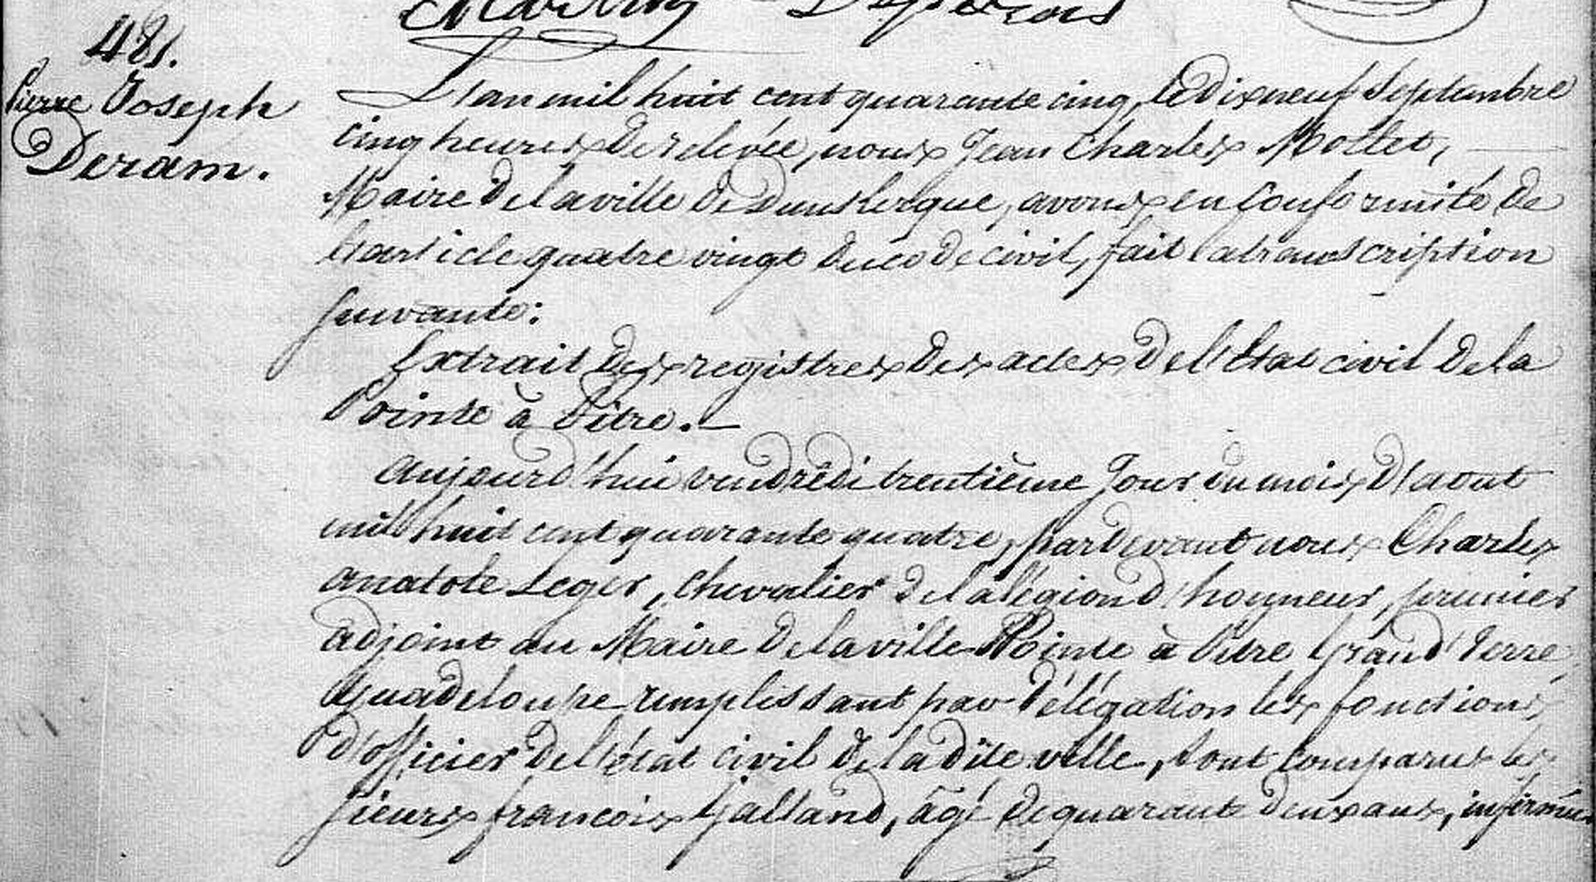 481.
Pierre Joseph
Deram.
L'an mil huit cent quarante cinq, le dixneuf Septembre
cinq heures de relevée, nous Jean Charles Mollet,
Maire de la ville de Dunkerque, avons en conformité de
l'article quatre vingt du code civil, fait la transcription
suivante:
Extrait des registres des actes de l'Etat civil de la
Pointe à Pitre. —
Aujourd'hui vendredi trentième jour du mois d'aout
mil huit cent quarante quatre, pardevant nous Charles
anatole Leger, chevalier de la légion d'honneur, premier
adjoint au Maire de la ville Pointe à Pitre Grand Terre
Guadeloupe remplissant par délégation les fonctions
d'officier de l'état civil de la dite ville, sont comparus les
sieurs francois Galland, âgé de quarante deux ans, infirmier